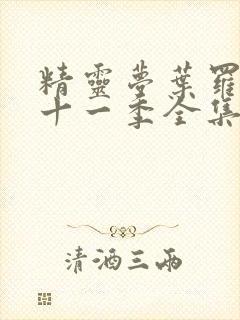 精靈夢葉羅
十一季全集
清酒三兩